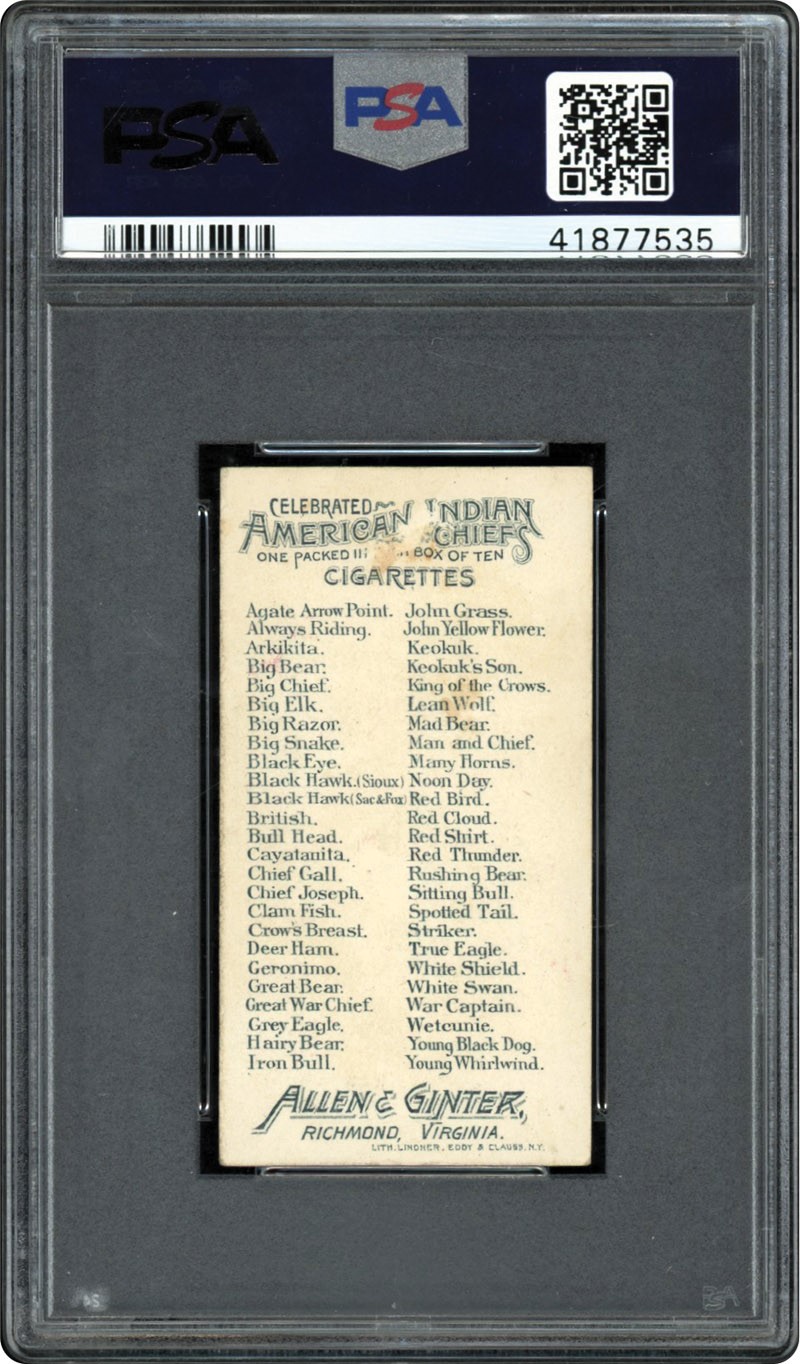 PSA
PSA
41877535
CELEBRATED
AMERICAN INDIAN
CHIEFS
ONE PACKED IN BOX OF TEN
CIGARETTES
Agate Arrow Point. John Grass.
Always Riding. John Yellow Flower.
Arkikita. Keokuk.
Big Bear. Keokuk's Son.
Big Chief. King of the Crows.
Big Elk. Lean Wolf.
Big Razor. Mad Bear.
Big Snake. Man and Chief.
Black Eye. Many Horns.
Black Hawk. (Sioux) Noon Day.
Black Hawk (Sac & Fox) Red Bird.
British. Red Cloud.
Bull Head. Red Shirt.
Cayatanita. Red Thunder.
Chief Gall. Rushing Bear.
Chief Joseph. Sitting Bull.
Clam Fish. Spotted Tail.
Crow's Breast. Striker.
Deer Ham. True Eagle.
Geronimo. White Shield.
Great Bear. White Swan.
Great War Chief. War Captain.
Grey Eagle. Wetcunie.
Hairy Bear. Young Black Dog.
Iron Bull. Young Whirlwind.
ALLEN & GINTER,
RICHMOND, VIRGINIA.
LITH. LINDNER, EDDY & CLAUSS, N.Y.
PSA